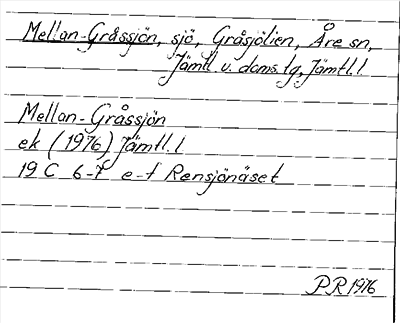 Mellan-Gråssjön, sjö, Gråsjölien, Åre sn,
Jämtl. v. doms. tg, Jämtl. l.
Mellan-Gråssjön
ek (1976) Jämtl. l.
19 C 6-7 e-f Rensjönäset
PR 1976